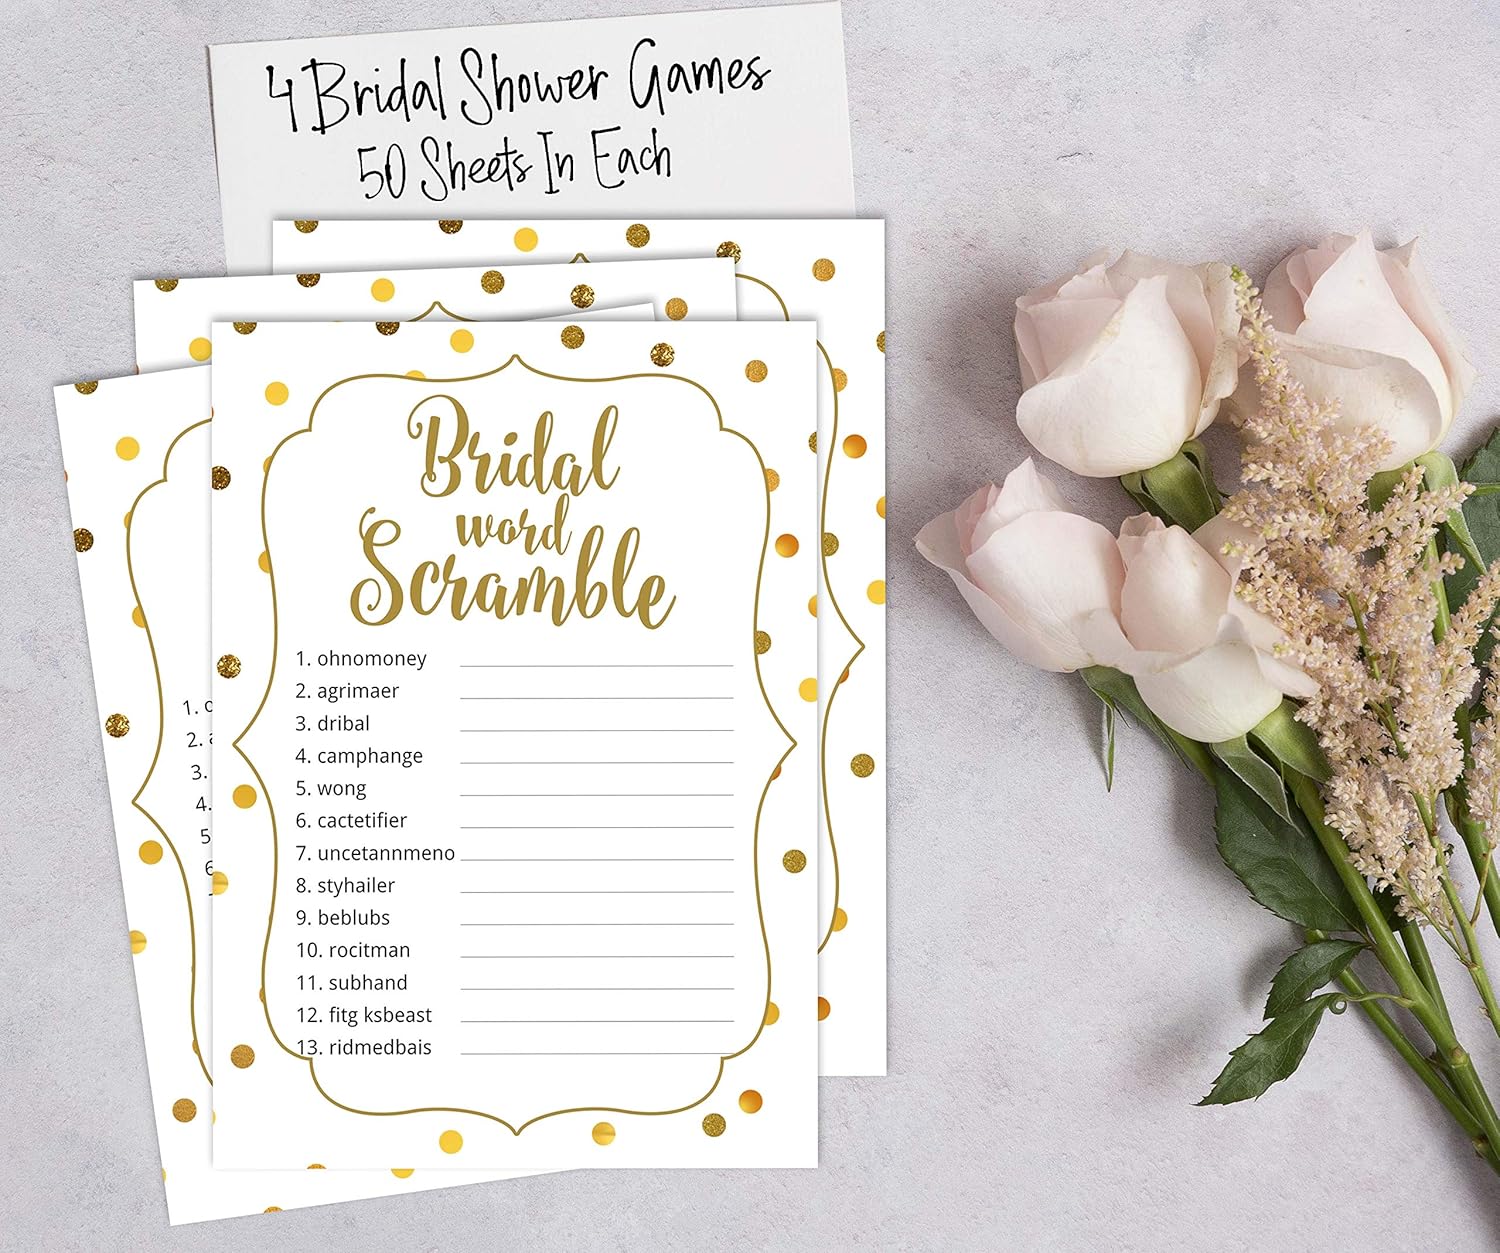 4 Bridal Shower Games
50 Sheets In Each
Bridal
word
Scramble
1. ohnomoney
2. agrimaer
3. dribal
4. camphange
5. wong
6. cactetifier
7. uncetannmeno
8. styhailer
9. beblubs
10. rocitman
11. subhand
12. fitg ksbeast
13. ridmedbais
1. o
2. a
3.
4.
5
6